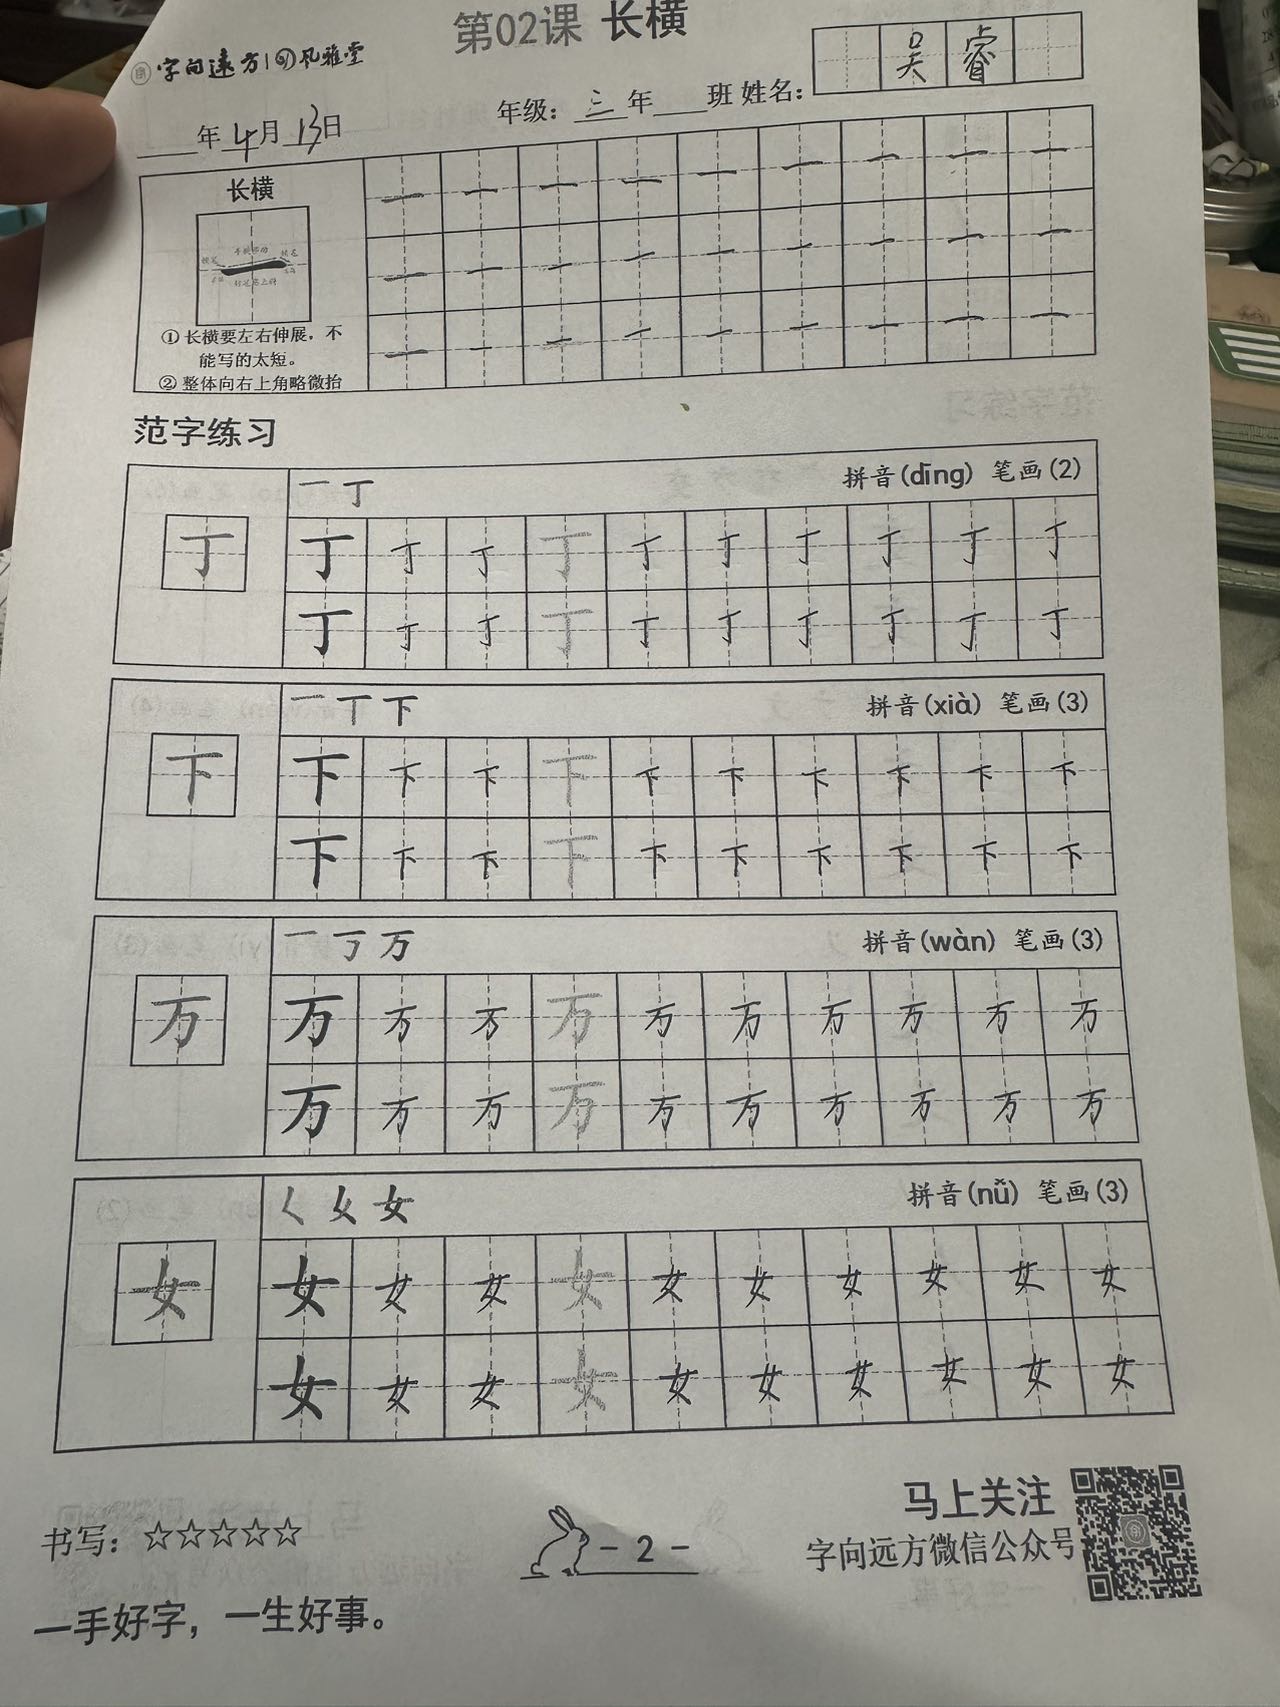 第02课 长横
字向远方 风雅堂
年级：三年 班 姓名：吴睿
年4月13日
长横 一 一 一 一 一 一 一 一 一
一 一 一 一 一 一 一 一 一
一 一 一 一 一 一 一 一 一
①长横要左右伸展，不
能写的太短。
②整体向右上角略微抬
范字练习
一 丁 拼音(dīng) 笔画(2)
丁 丁 丁 丁 丁 丁 丁 丁 丁 丁 丁
丁 丁 丁 丁 丁 丁 丁 丁 丁 丁
一 丅 下 拼音(xià) 笔画(3)
下 下 下 下 下 下 下 下 下 下 下
下 下 下 下 下 下 下 下 下 下
一 丂 万 拼音(wàn) 笔画(3)
万 万 万 万 万 万 万 万 万 万 万
万 万 万 万 万 万 万 万 万 万
𡿨 女 拼音(nǚ) 笔画(3)
女 女 女 女 女 女 女 女 女 女 女
女 女 女 女 女 女 女 女 女 女
书写：☆☆☆☆☆
- 2 -
马上关注
字向远方微信公众号
一手好字，一生好事。